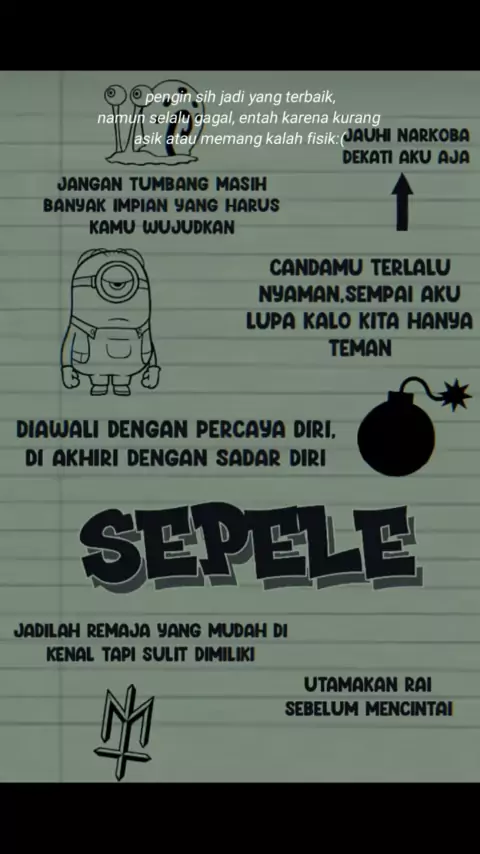 pengin sih jadi yang terbaik,
namun selalu gagal, entah karena kurang
asik atau memang kalah fisik:(
JAUHI NARKOBA
DEKATI AKU AJA
JANGAN TUMBANG MASIH
BANYAK IMPIAN YANG HARUS
KAMU WUJUDKAN
CANDAMU TERLALU
NYAMAN.SEMPAI AKU
LUPA KALO KITA HANYA
TEMAN
DIAWALI DENGAN PERCAYA DIRI,
DI AKHIRI DENGAN SADAR DIRI
SEPELE
JADILAH REMAJA YANG MUDAH DI
KENAL TAPI SULIT DIMILIKI
UTAMAKAN RAI
SEBELUM MENCINTAI